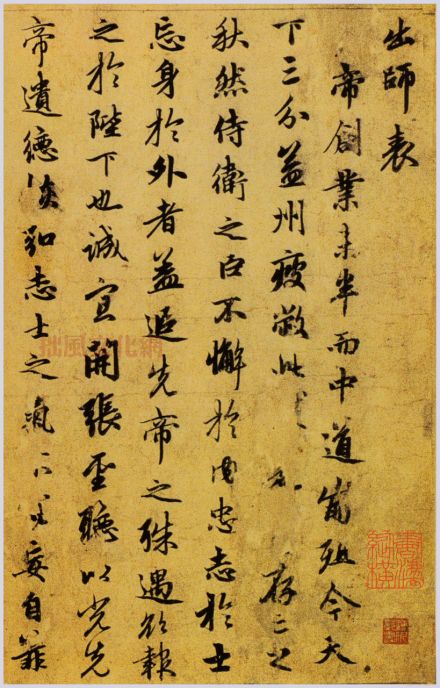 出師表
帝創業未半而中道崩殂今天
下三分益州疲敝此存亡之
秋然侍衛之臣不懈於內忠志於士
忘身於外者蓋追先帝之殊遇欲報
之於陛下也誠宜開張聖聽以光先
帝遺德恢弘志士之氣不宜妄自菲
拙風文化網